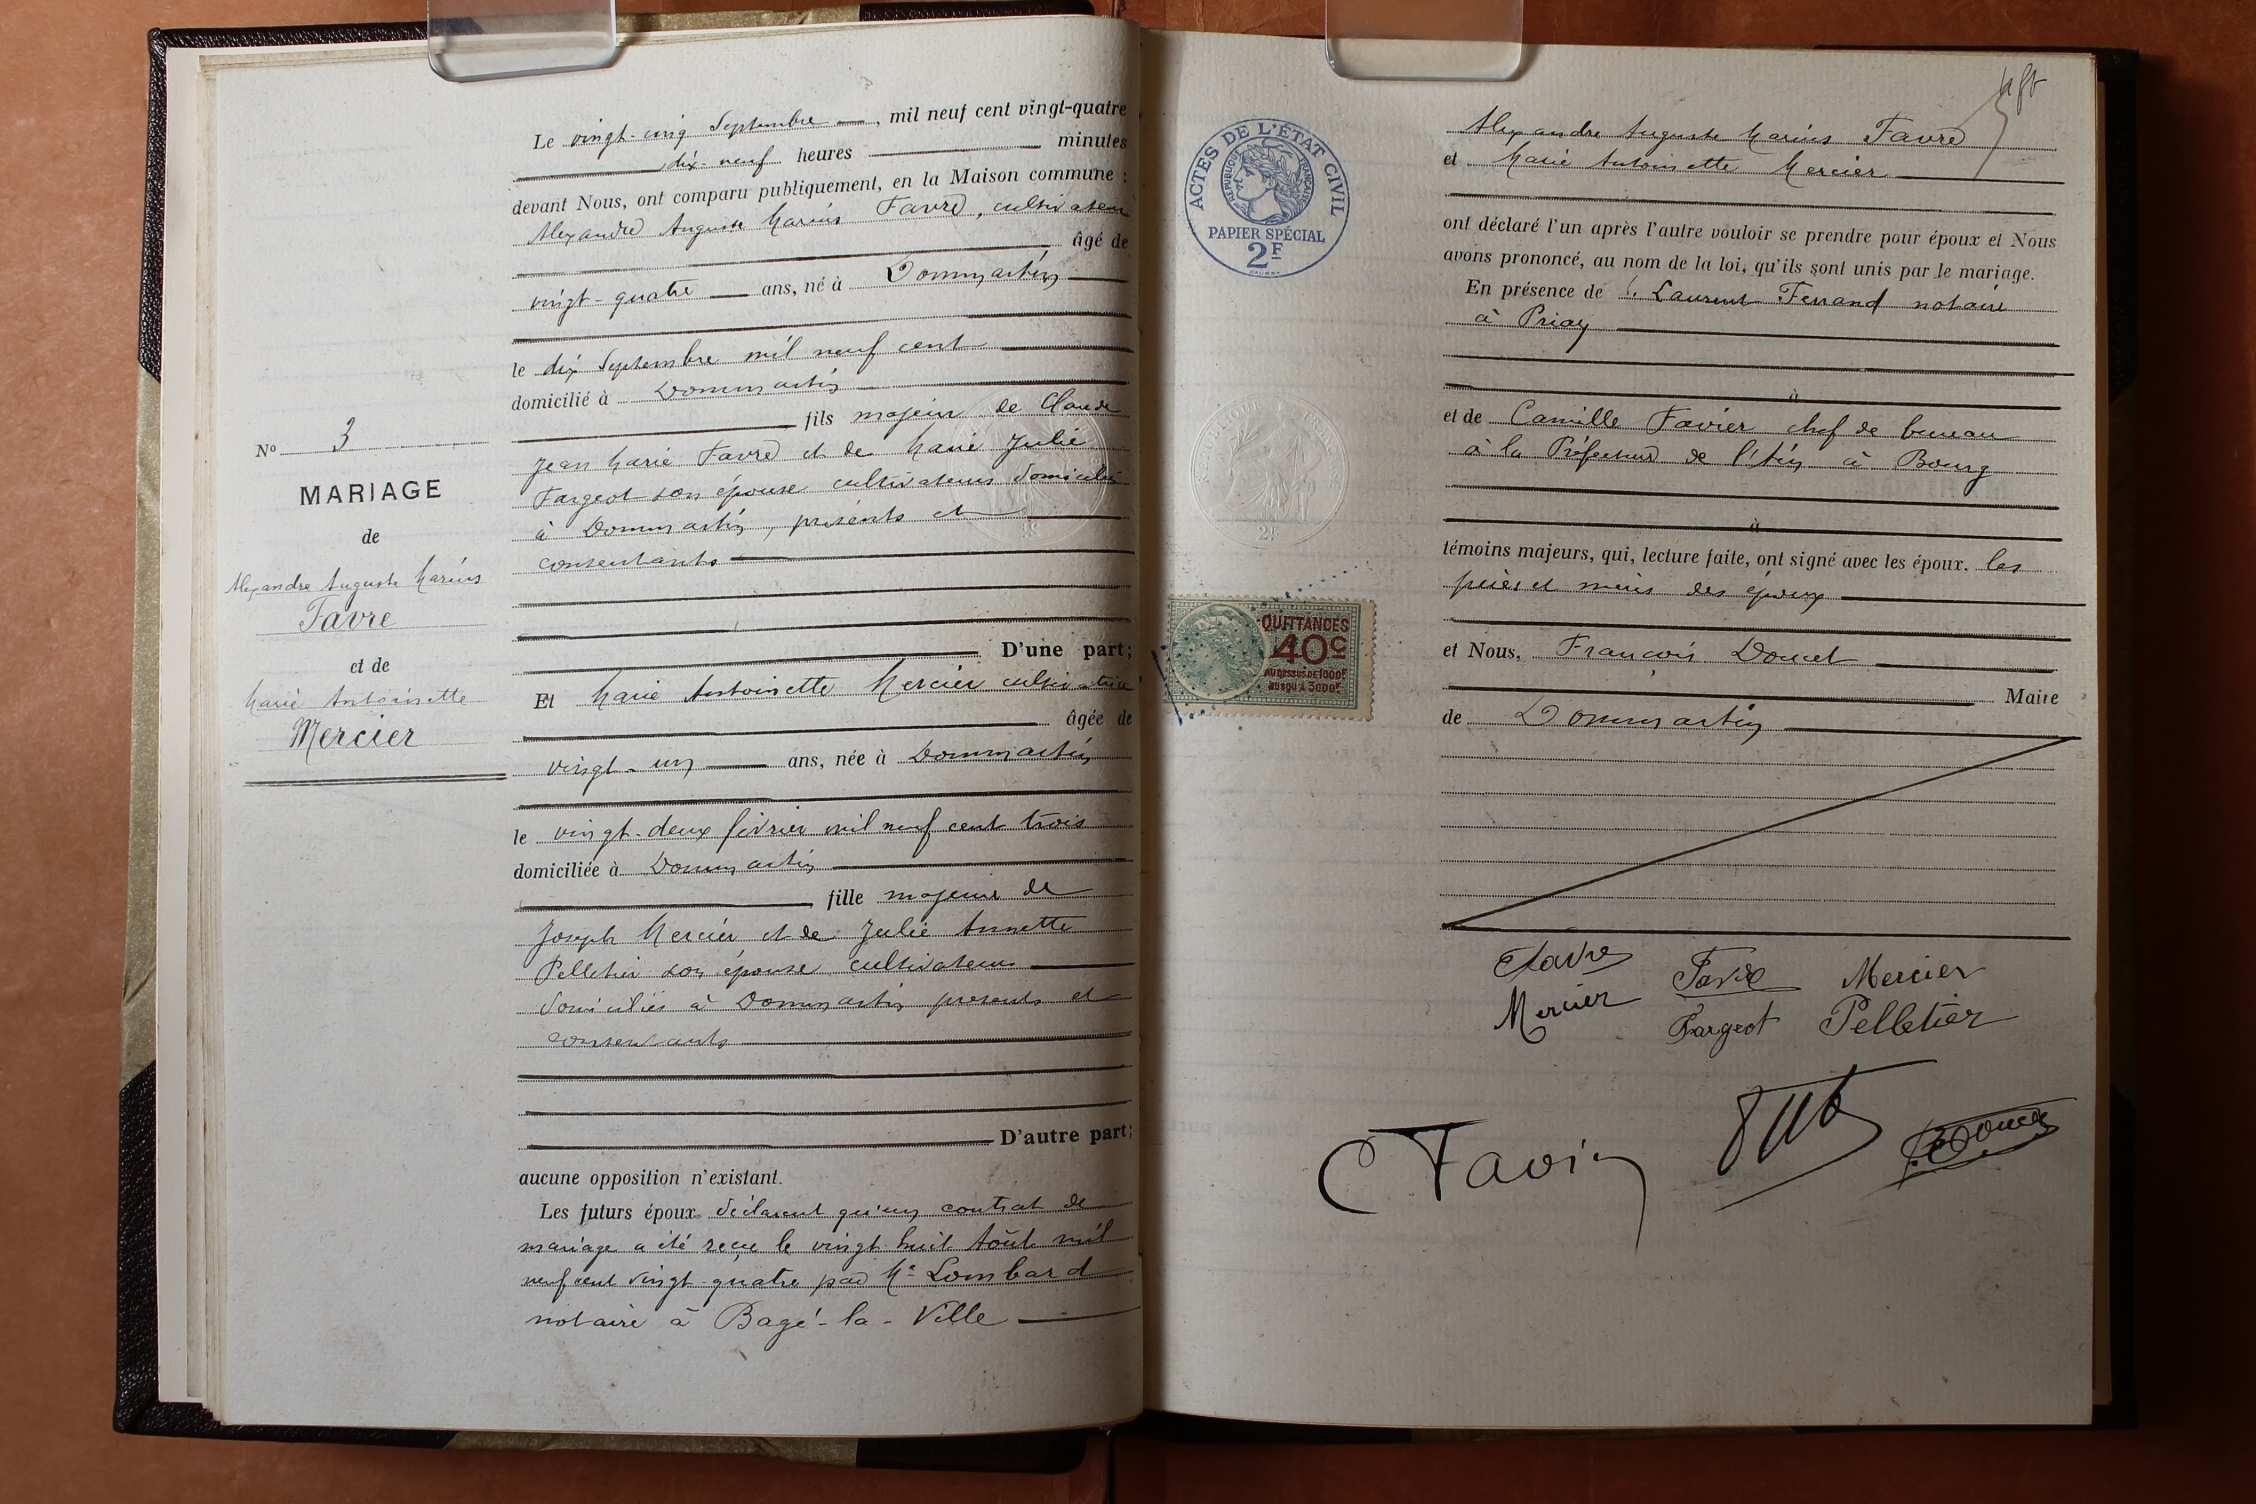 Le vingt-cinq Septembre, mil neuf cent vingt-quatre
dix-neuf heures minutes
devant Nous, ont comparu publiquement, en la Maison commune :
Alexandre Auguste Marius Favre, cultivateur
âgé de
vingt-quatre ans, né à Dommartin
le dix Septembre mil neuf cent
domicilié à Dommartin
fils majeur de Claude
Jean Marie Favre et de Marie Julie
Fargeot son épouse cultivateurs domiciliés
à Dommartin, présents et
consentants
D'une part;
Et Marie Antoinette Mercier cultivatrice
âgée de
vingt-un ans, née à Dommartin
le vingt-deux février mil neuf cent trois
domiciliée à Dommartin
fille majeure de
Joseph Mercier et de Julie Annette
Pelletier son épouse cultivateurs
domiciliés à Dommartin présents et
consentants
D'autre part;
aucune opposition n'existant.
Les futurs époux déclarent qu'un contrat de
mariage a été reçu le vingt huit Août mil
neuf cent vingt-quatre par Me Lombard
notaire à Bagé-la-Ville
No 3
MARIAGE
de
Alexandre Auguste Marius
Favre
et de
Marie Antoinette
Mercier
ACTES DE L'ÉTAT CIVIL
RÉPUBLIQUE FRANÇAISE
PAPIER SPÉCIAL
2F
QUITTANCES
40c
AU DESSUS DE 1000F
JUSQU'À 3000F
Alexandre Auguste Marius Favre
et Marie Antoinette Mercier
ont déclaré l'un après l'autre vouloir se prendre pour époux et Nous
avons prononcé, au nom de la loi, qu'ils sont unis par le mariage.
En présence de Laurent Ferrand notaire
à Priay
à
et de Camille Favier chef de bureau
à la Préfecture de l'Ain à Bourg
à
témoins majeurs, qui, lecture faite, ont signé avec les époux. les
pères et mères des époux
et Nous, François Doucet
Maire
de Dommartin
Favre Favre Mercier
Mercier Fargeot Pelletier
C Favier
F. Doucet